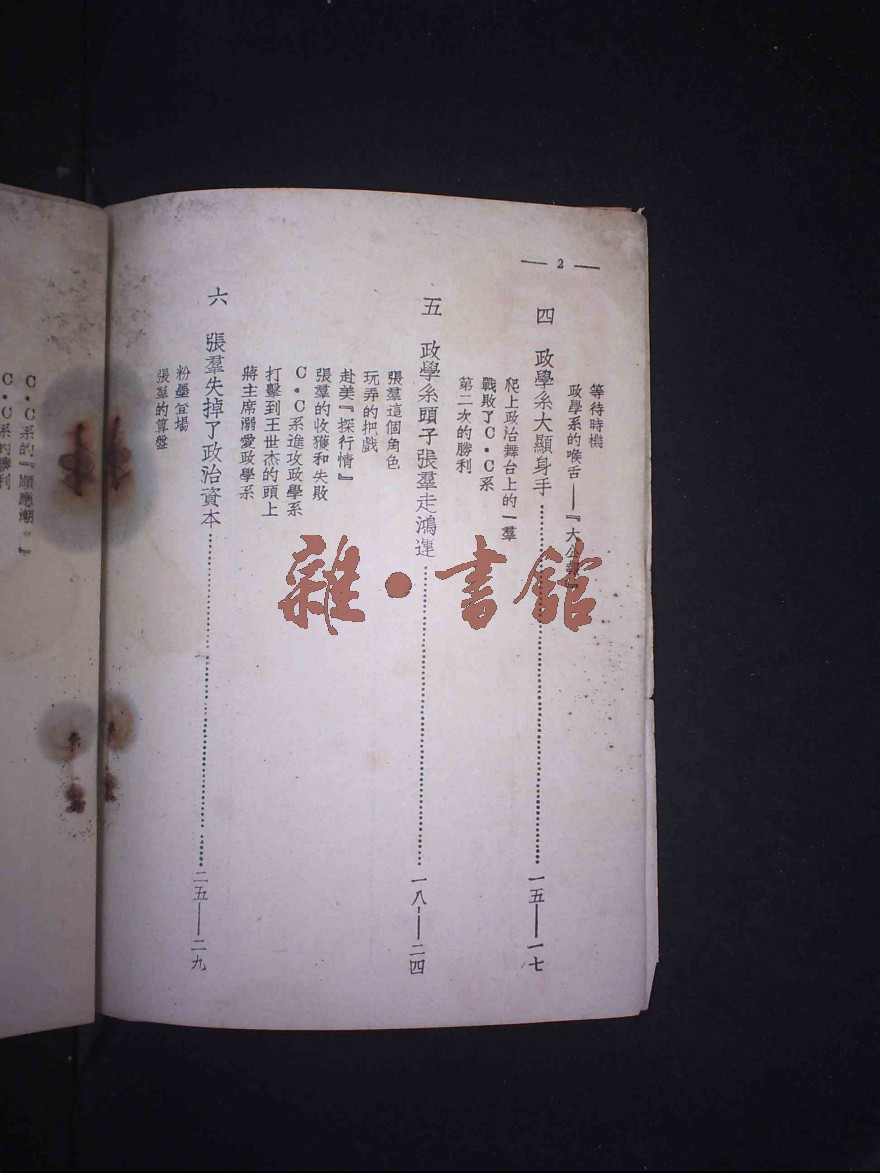 — 2 —
等待時機
政學系的喉舌——『大公報』
四 政學系大顯身手…………一五——一七
爬上政治舞台上的一羣
戰敗了C·C系
第二次的勝利
五 政學系頭子張羣走鴻運…………一八——二四
張羣這個角色
玩弄的把戲
赴美『探行情』
張羣的收獲和失敗
C·C系進攻政學系
打擊到王世杰的頭上
蔣主席溺愛政學系
六 張羣失掉了政治資本…………二五——二九
粉墨登場
張羣的算盤
C·C系的『順應潮
C·C系的勝利
雜·書館